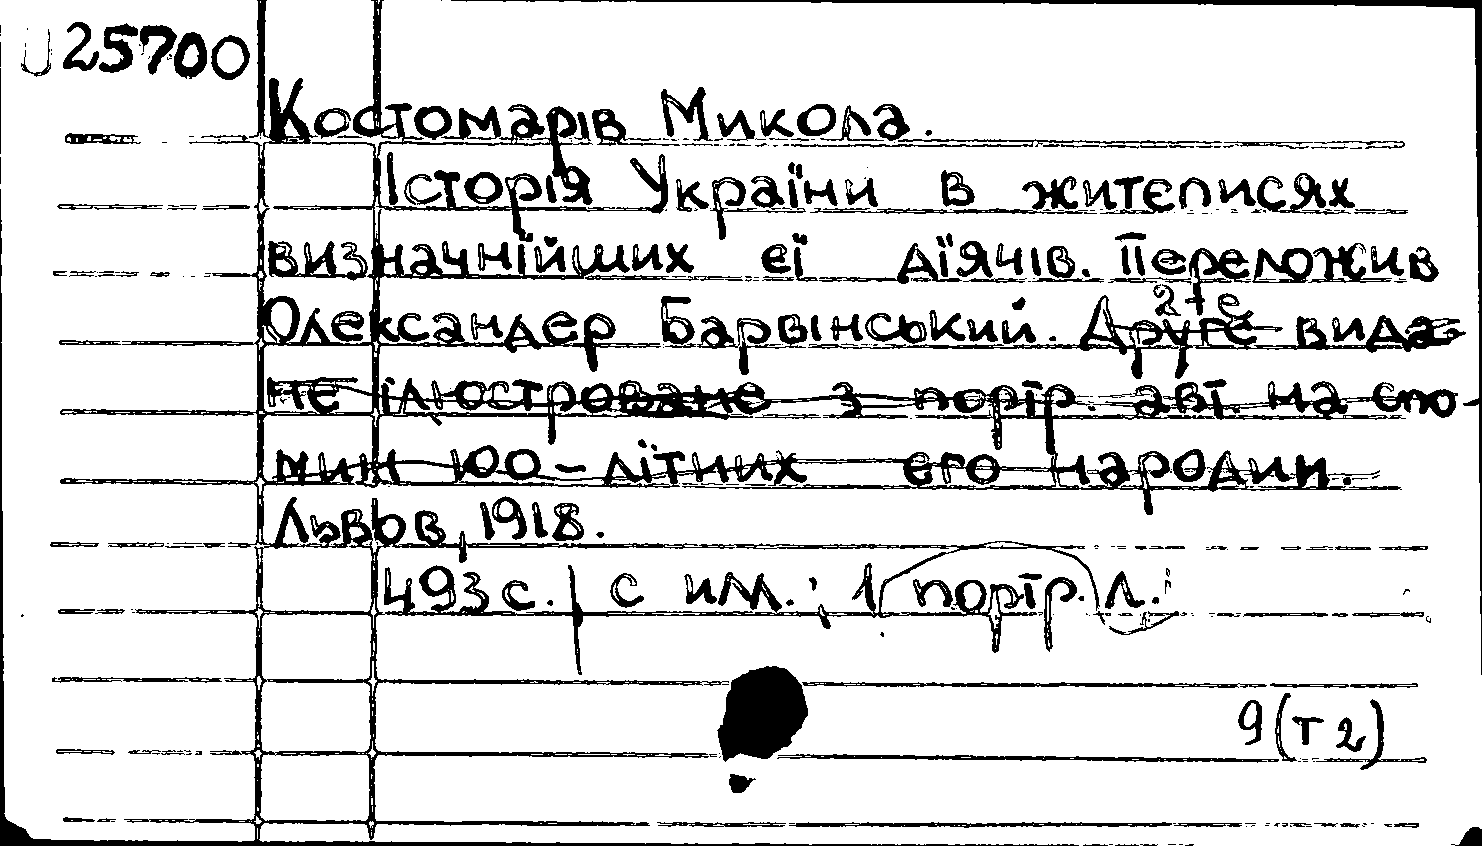 U 25700
Костомарів Микола.
Історія України в житєписях
визначнїйших єї дїячів. Переложив
2-е
Олександер Барвінський. Друге вида-
нє ілюстроване з портр. авт. на спо-
мин 100-літних его народин.
Львов, 1918.
493 с. с им.; 1 портр. л.
9 (т 2)